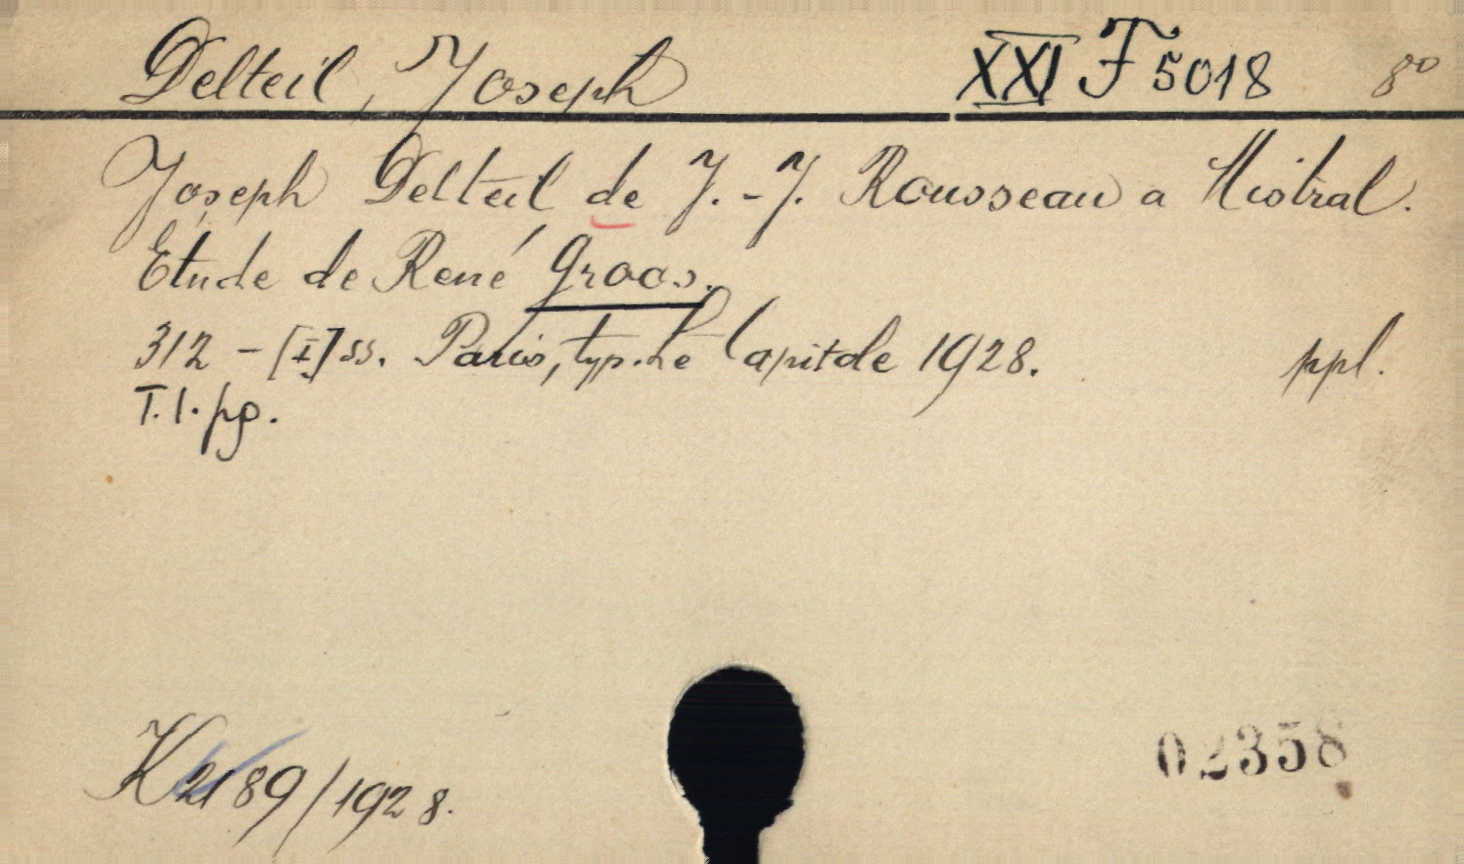 Delteil, Joseph XXI F 5018 8°
Joseph Delteil de J.-J. Rousseau a Mistral.
Etude de René Groos.
312 - [I] ss. Paris, typ. Le Capitole 1928. ppl.
T. l. pg.
K 2189/1928.
02358